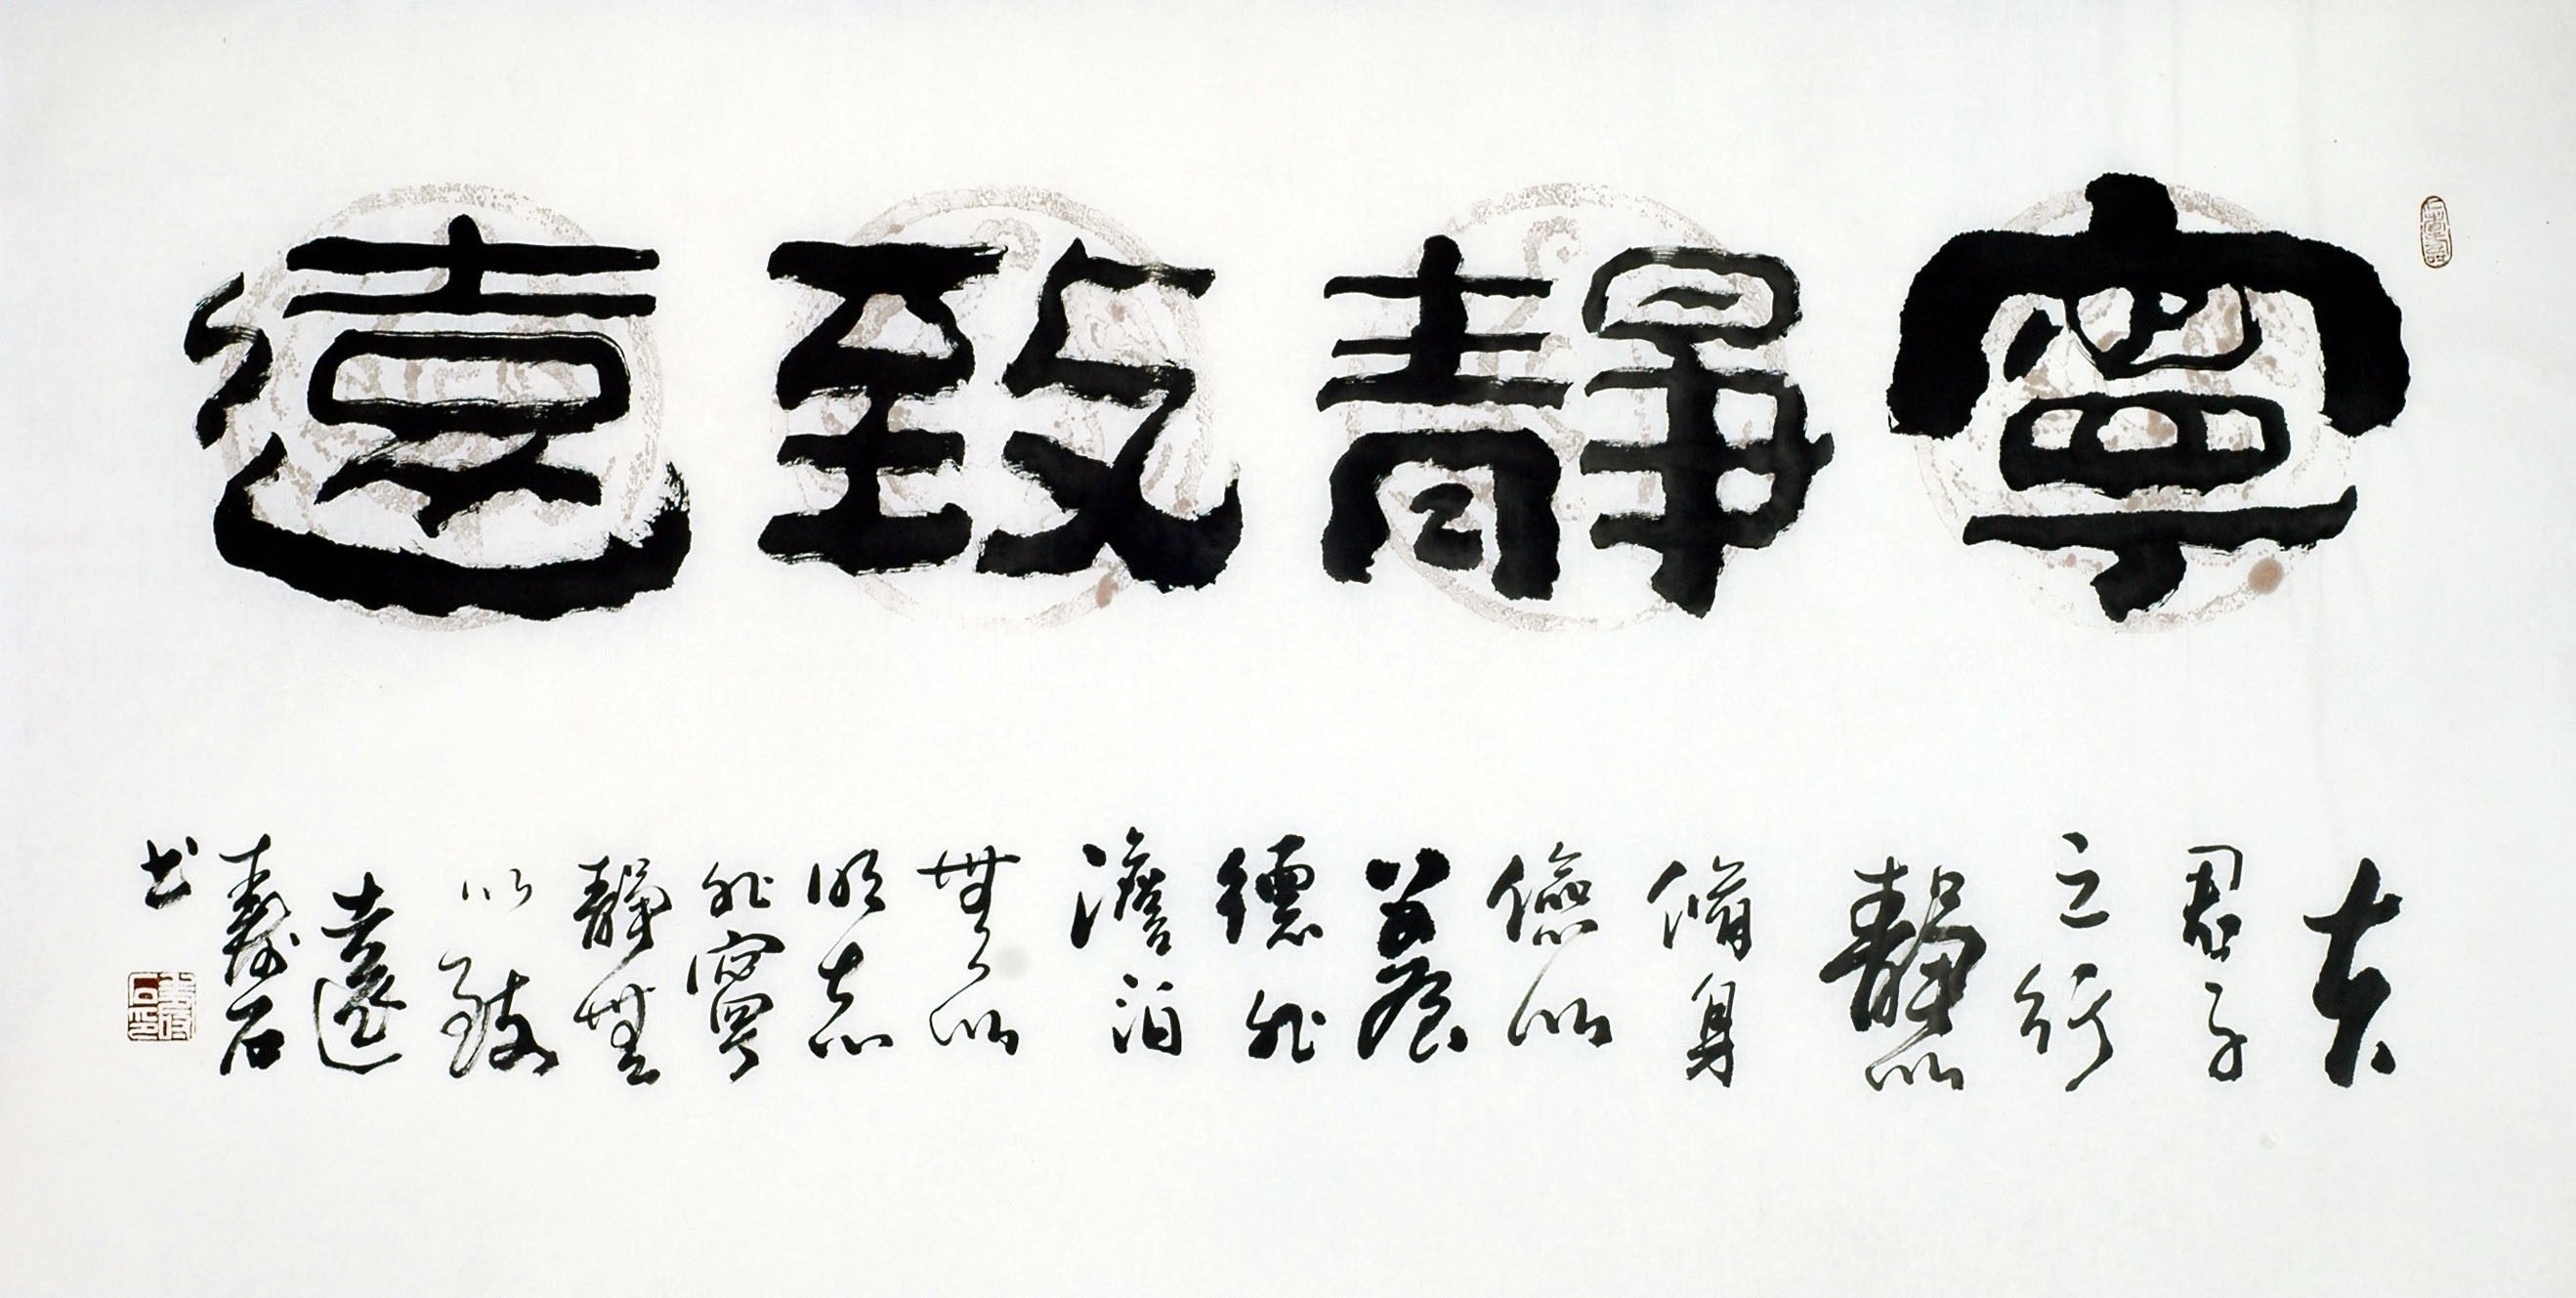 寧靜致遠
夫
君子
之行
靜以
脩身
儉以
養
德非
澹泊
無以
明志
非寧
靜無
以致
遠
壽石
書